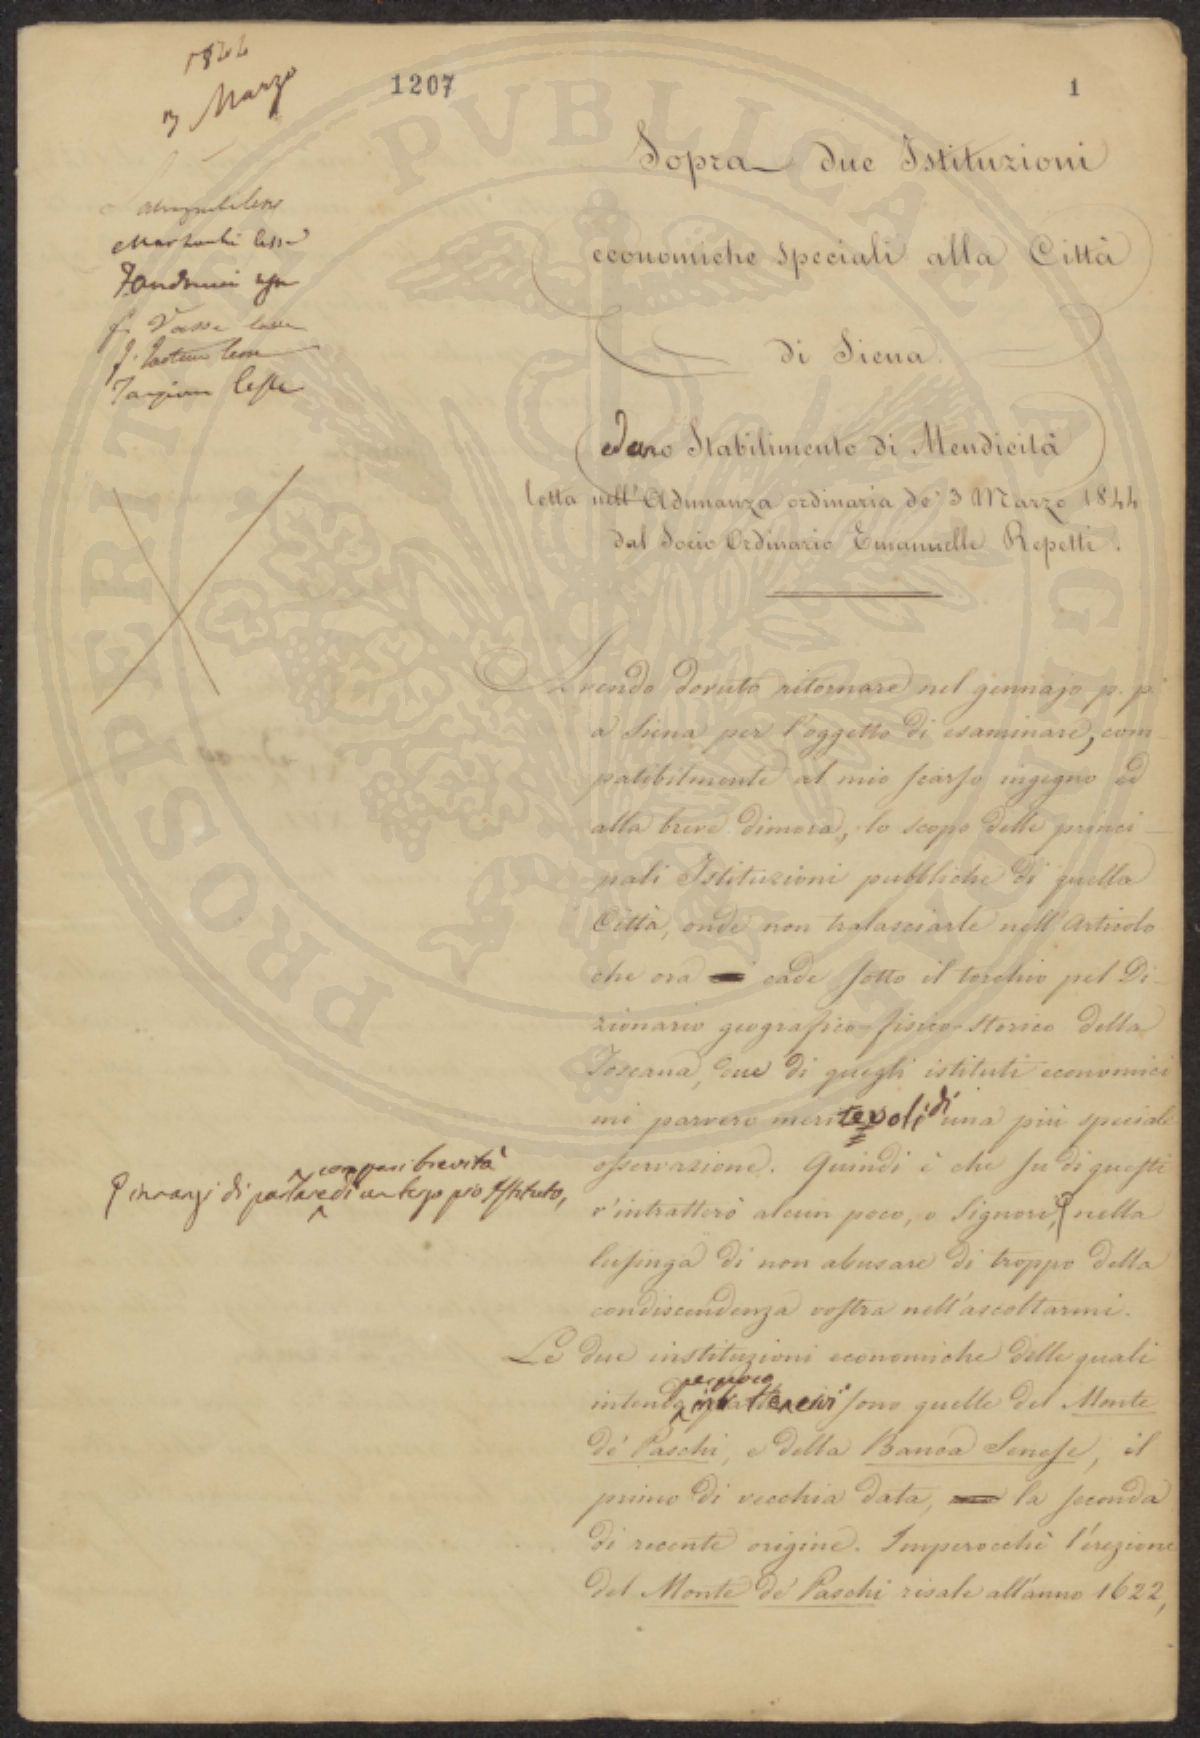 1844
3 Marzo
1207
1
Sopra due Istituzioni
economiche speciali alla Città
di Siena
ed uno Stabilimento di Mendicità
letta nell'Adunanza ordinaria de' 3 Marzo 1844
dal Socio Ordinario Emanuelle Repetti.
Avendo dovuto ritornare nel gennajo p. p.
a Siena per l'oggetto di esaminare, com-
patibilmente al mio scarso ingegno ed
alla breve dimora, lo scopo delle princi-
pali Istituzioni pubbliche di quella
Città, onde non tralasciarle nell'Articolo
che ora cade sotto il torchio pel Di-
zionario geografico-fisico-storico della
Toscana, due di quegli istituti economici
mi parvero meritevoli di una più speciale
osservazione. Quindi è che su di questi
v'intratterò alcun poco, o Signori, nella
lusinga di non abusare di troppo della
condiscendenza vostra nell'ascoltarmi.
con pari brevità
innanzi di parlare di un terzo pio Istituto,
Le due instituzioni economiche delle quali
per poco
intendo intrattenervi sono quelle del Monte
de' Paschi, e della Banca Senese, il
primo di vecchia data, la seconda
di recente origine. Imperocchè l'erezione
del Monte de' Paschi risale all'anno 1622,
PROSPERITATI PUBLICAE AUGENDAE